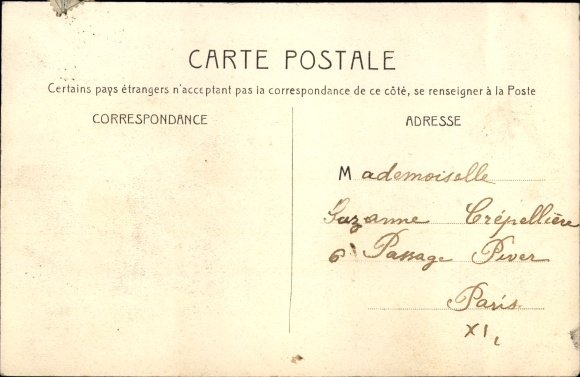 CARTE POSTALE
Certains pays étrangers n'acceptant pas la correspondance de ce côté, se renseigner à la Poste
CORRESPONDANCE
ADRESSE
Mademoiselle
Suzanne Crépellière
6 Passage Piver
Paris
XI